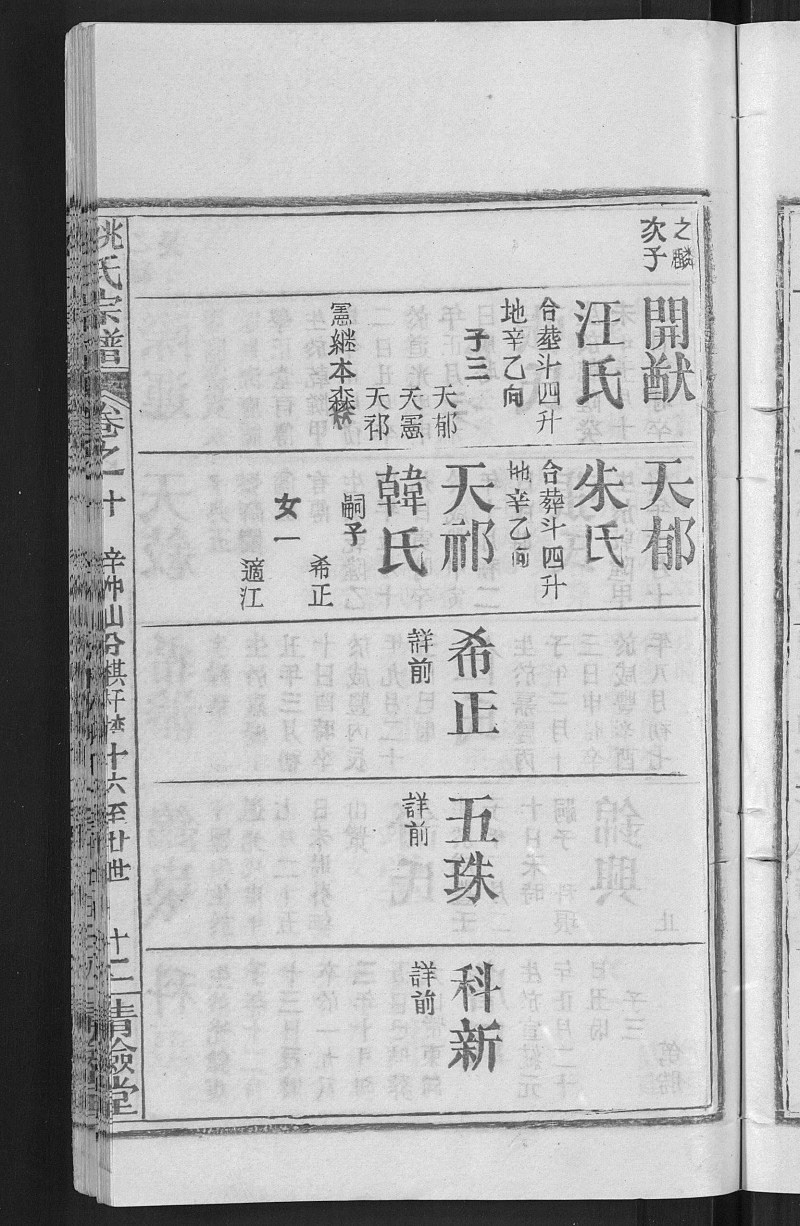 之麟
次子
開猷
汪氏
合葬斗四升
地辛乙向
子三
天郁
天憲
天祁
憲繼本森祧
天郁
朱氏
合葬斗四升
地辛乙向
天祁
韓氏
嗣子
希正
女一
適江
希正
詳前
五珠
詳前
科新
詳前
姚氏宗譜
卷之一十
辛冲山分棋杆
十六至廿世
十二
清儉堂